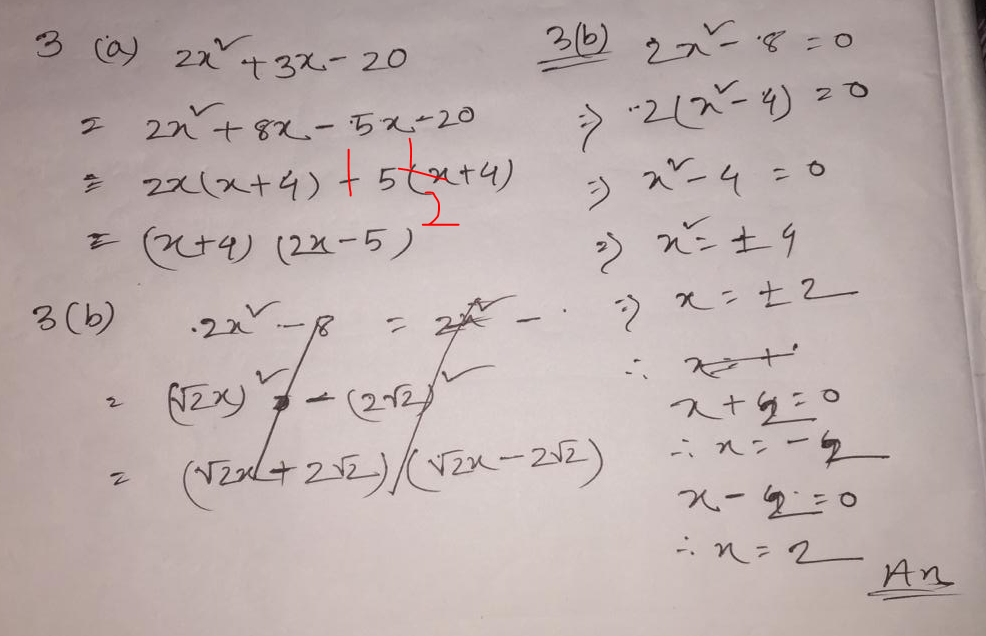 3 (a) 2x² + 3x - 20
= 2x² + 8x - 5x - 20
= 2x(x+4) - 5(x+4)
= (x+4) (2x-5)
3(b) 2x² - 8 = 2x² -
= (√2x)² - (2√2)²
= (√2x + 2√2) (√2x - 2√2)
3(b) 2x² - 8 = 0
⇒ 2(x² - 4) = 0
⇒ x² - 4 = 0
⇒ x² = ± 4
⇒ x = ± 2
∴ x = +
x + 2 = 0
∴ x = - 2
x - 2 = 0
∴ x = 2
An